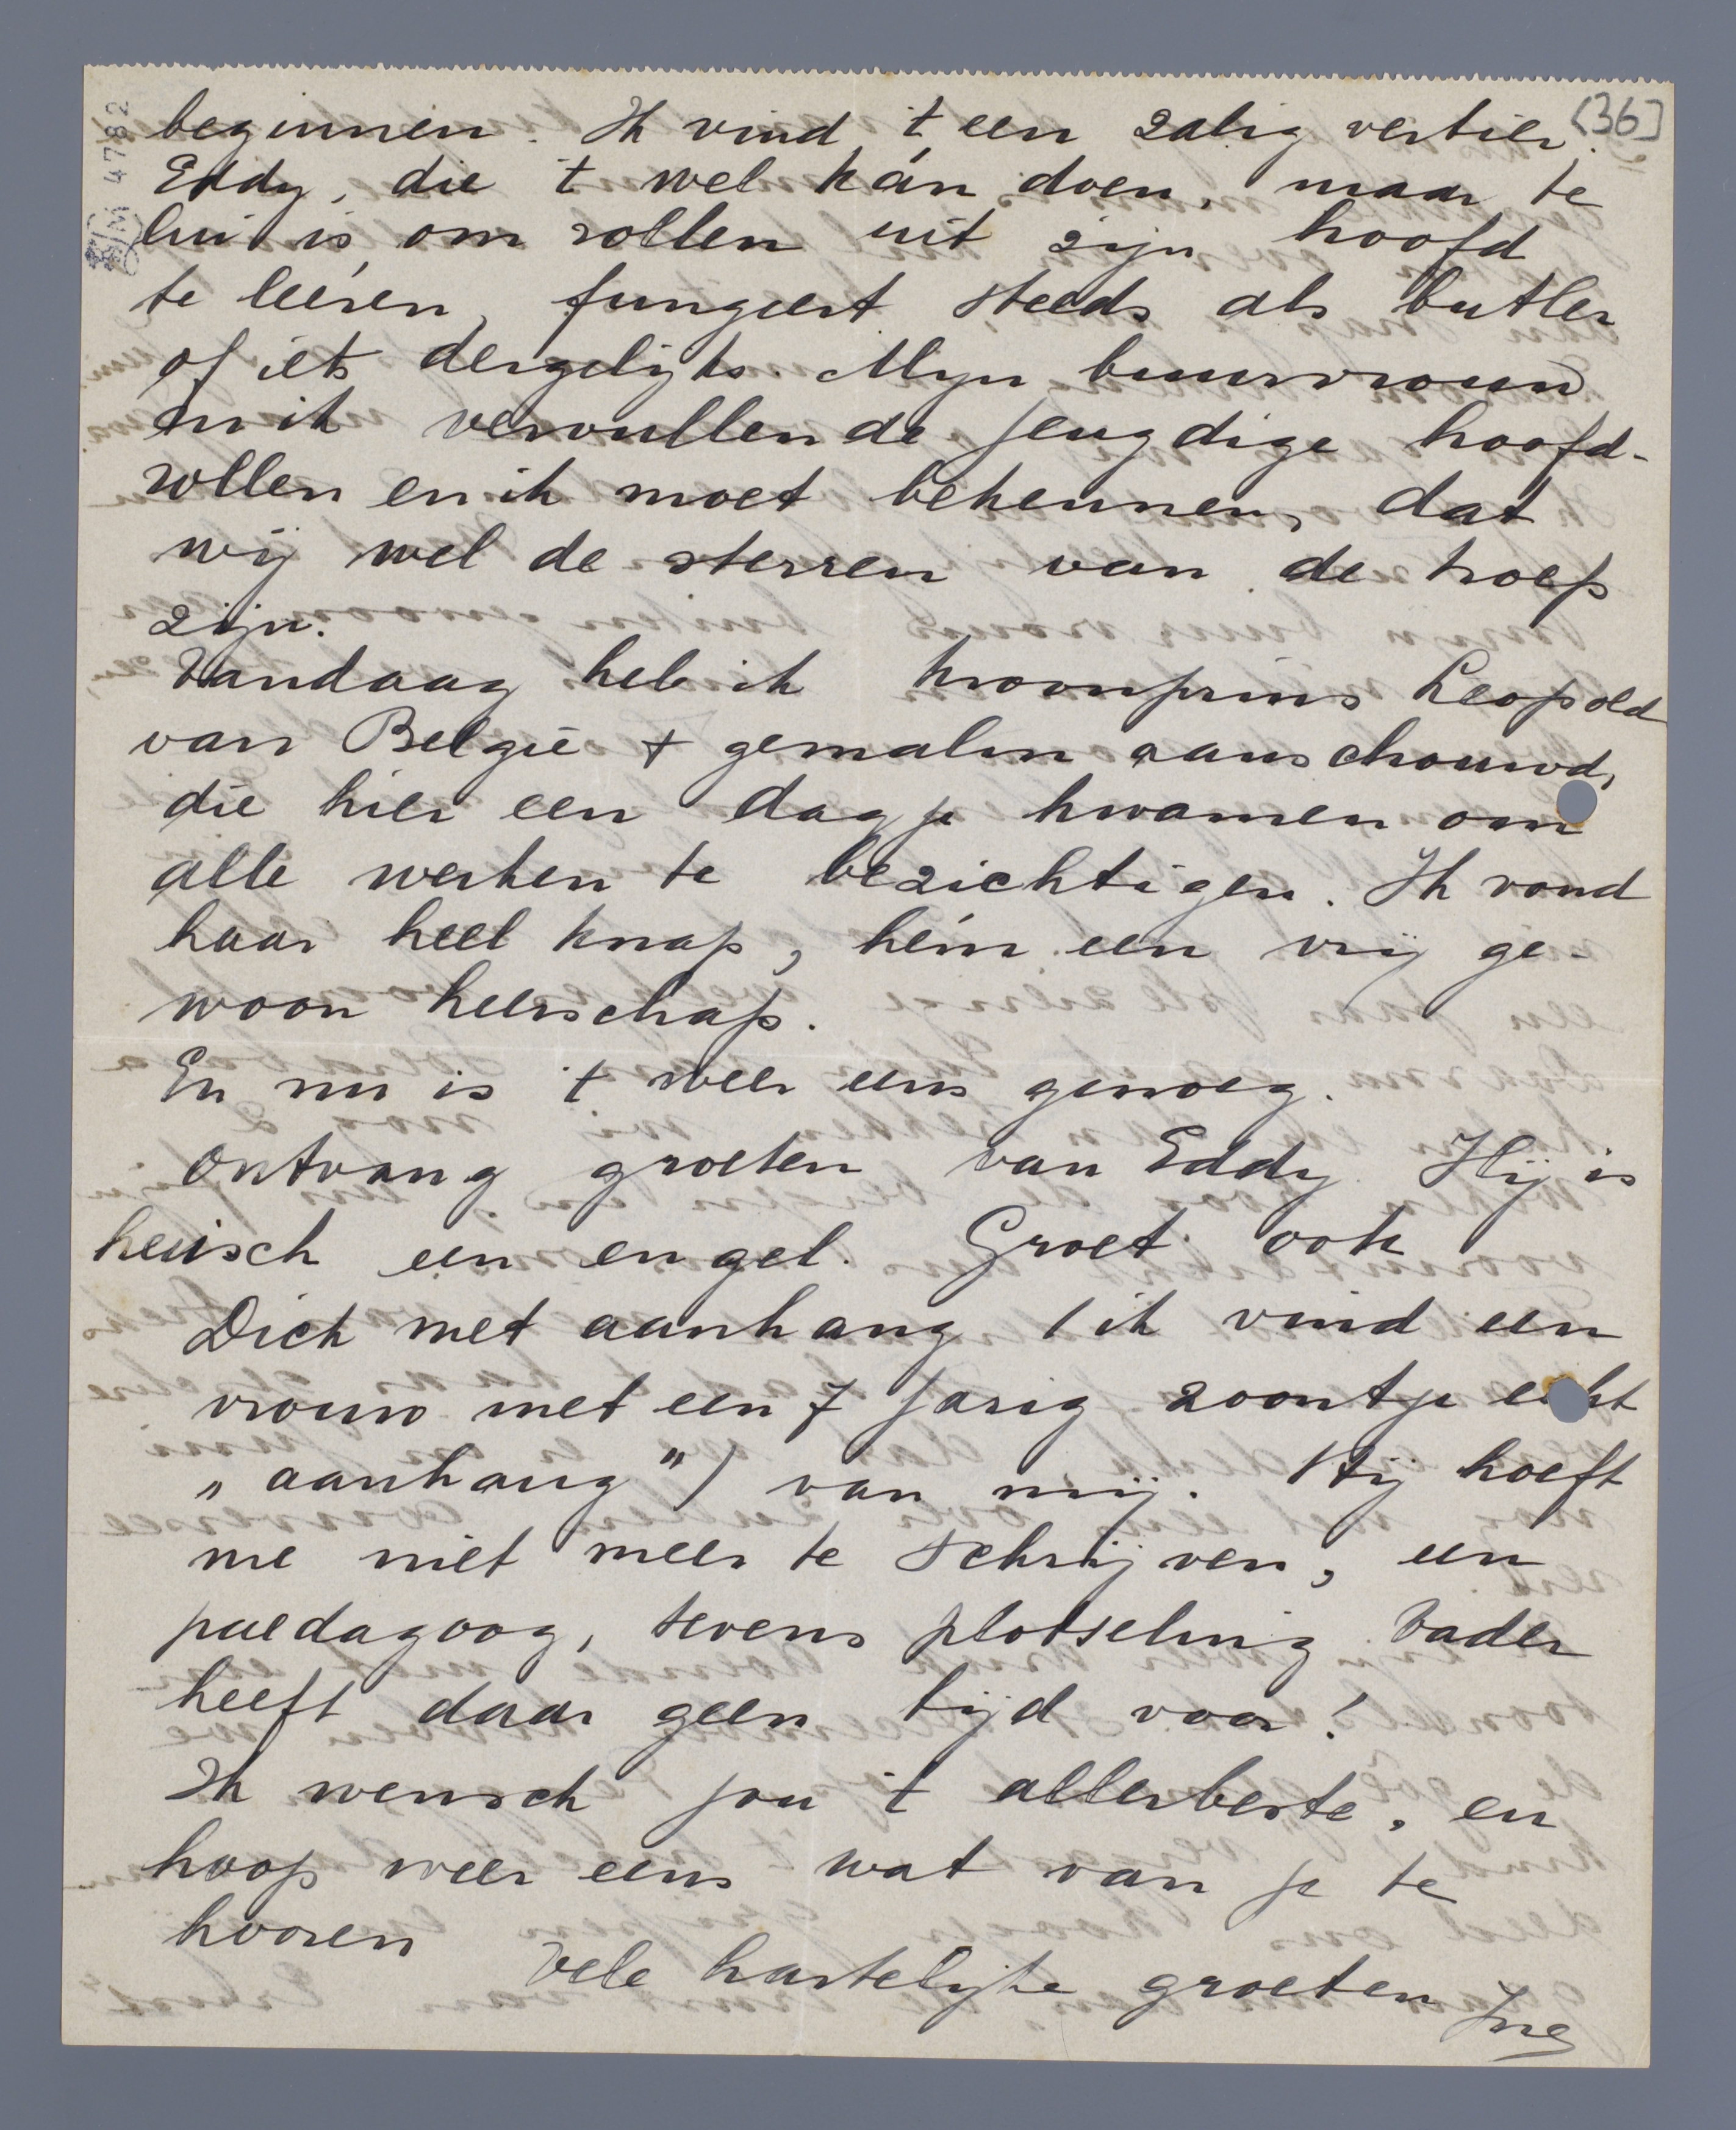 [36]
4782
beginnen. Ik vind 't een zalig vertier.
Eddy, die 't wel kán doen, maar te
lui is om rollen uit zijn hoofd
te leéren, fungeert steeds als butler
of iets dergelijks. Mijn buurvrouw
en ik vervullen de jeugdige hoofd-
rollen en ik moet bekennen, dat
wij wel de sterren van de troep
zijn.
Vandaag heb ik kroonprins Leopold
van België + gemalin aanschouwd,
die hier een dagje kwamen om
alle werken te bezichtigen. Ik vond
haar heel knap, hém een vrij ge-
woon heerschap.
En nu is 't weer eens genoeg.
Ontvang groeten van Eddy. Hij is
heusch een engel. Groet ook
Dick met aanhang (ik vind een
vrouw met een 7 jarig zoontje echt
„aanhang") van mij. Hij hoeft
me niet meer te schrijven, een
paedagoog, tevens plotseling vader
heeft daar geen tijd voor!
Ik wensch jou 't allerbeste, en
hoop weer eens wat van je te
hooren
Vele hartelijke groeten
Ine